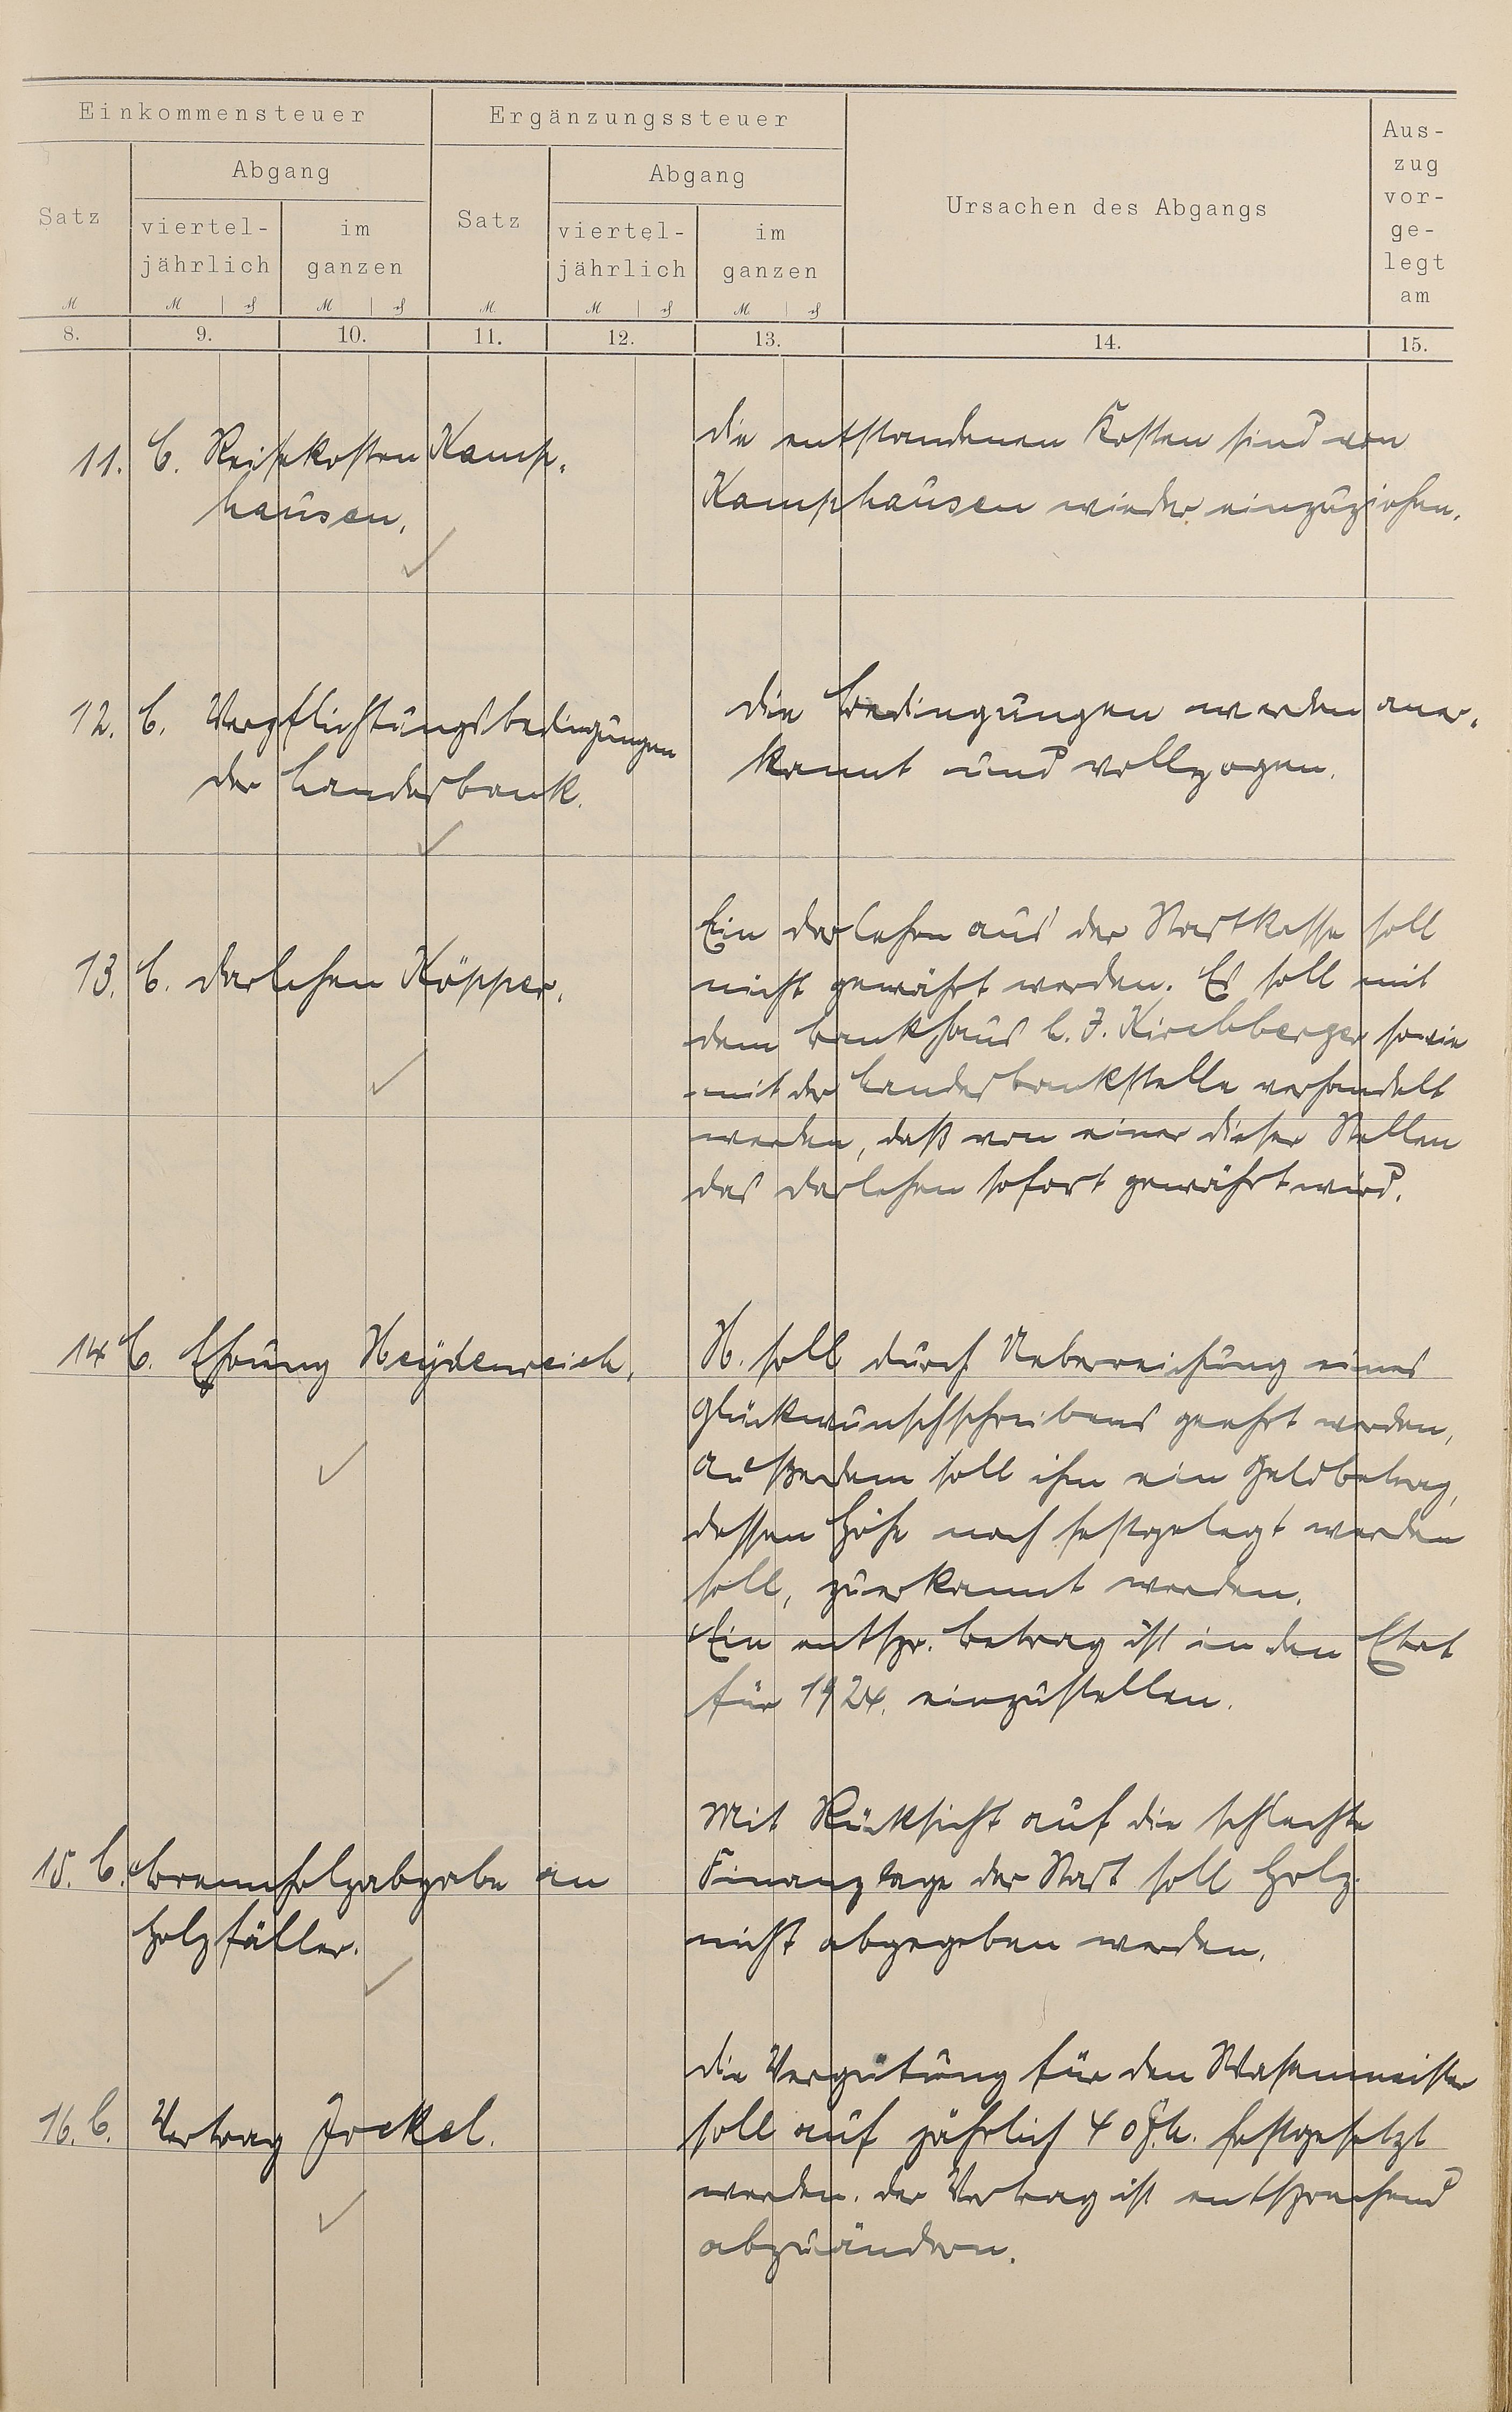 Einkommensteuer
Ergänzungssteuer
Ursachen des Abgangs
Aus-
zug
vor-
ge-
legt
am
Satz
Abgang
viertel-
jährlich
im
ganzen
Satz
Abgang
viertel-
jährlich
im
ganzen
M M ₰ M ₰ M M ₰ M ₰
8. 9. 10. 11. 12. 13. 14. 15.
11. C. Reisekosten Kamp-
hausen.
Die entstandenen Kosten sind von
Kamphausen wieder einzuziehen.
12. C. Verpflichtungsbedingungen
der Landesbank.
Die Bedingungen werden aner-
kannt und vollzogen.
13. C. Darlehen Köpper.
Ein Darlehn aus der Stadtkasse soll
nicht gewährt werden. Es soll mit
dem Bankhaus L. J. Kirchberger sowie
mit der Landesbankstelle verhandelt
werden, daß von einer dieser Stellen
das Darlehen sofort gewährt wird.
14 C. Ehrung Heydenreich.
H. soll durch Ueberreichung eines
Glückwunschschreibens geehrt werden,
außerdem soll ihm ein Geldbetrag,
dessen Höhe noch festgelegt werden
soll, zuerkannt werden.
Ein entspr. Betrag ist in den Etat
für 1924. einzustellen.
15. C. Brennholzabgabe an
Holzfäller.
Mit Rücksicht auf die schlechte
Finanzlage der Stadt soll Holz
nicht abgegeben werden.
16. C. Vertrag Jockel.
Die Vergütung für den Wasenmeister
soll auf jährlich 40 festgesetzt
werden. Der Vertrag ist entsprechend
abzuändern.